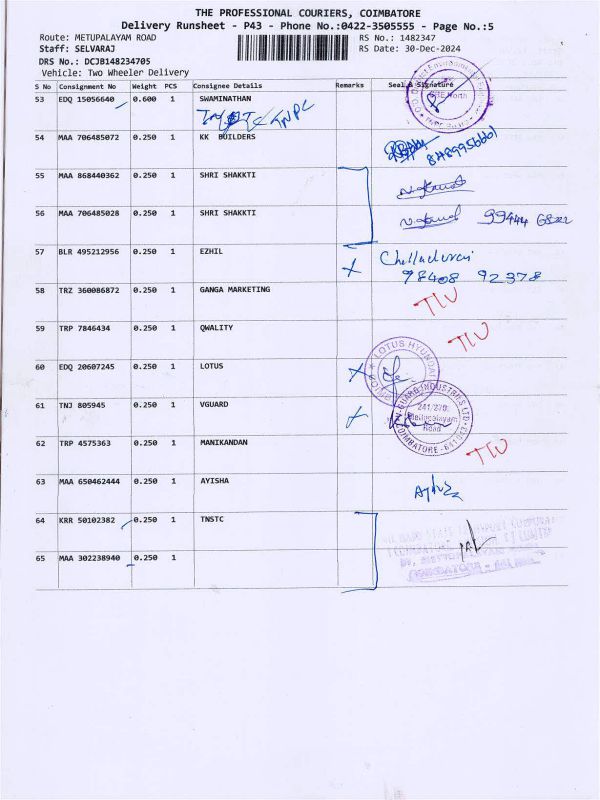 THE PROFESSIONAL COURIERS, COIMBATORE
Delivery Runsheet - P43 - Phone No.:0422-3505555 - Page No.:5
Route: METUPALAYAM ROAD
RS No.: 1482347
Staff: SELVARAJ
RS Date: 30-Dec-2024
DRS No.: DCJB148234705
Vehicle: Two Wheeler Delivery
S No Consignment No Weight PCS Consignee Details Remarks Seal & Signature
53 EDQ 15056640 0.600 1 SWAMINATHAN
54 MAA 706485072 0.250 1 KK BUILDERS
55 MAA 868440362 0.250 1 SHRI SHAKKTI
56 MAA 706485028 0.250 1 SHRI SHAKKTI
57 BLR 495212956 0.250 1 EZHIL
Chelladurai
98408 92378
58 TRZ 360086872 0.250 1 GANGA MARKETING
59 TRP 7846434 0.250 1 QWALITY
60 EDQ 20607245 0.250 1 LOTUS
LOTUS HYUNDAI
61 TNJ 805945 0.250 1 VGUARD
V-GUARD INDUSTRIES LTD
241/270,
Mettupalayam
Road
COIMBATORE - 641 043
62 TRP 4575363 0.250 1 MANIKANDAN
63 MAA 650462444 0.250 1 AYISHA
64 KRR 50102382 0.250 1 TNSTC
65 MAA 302238940 0.250 1